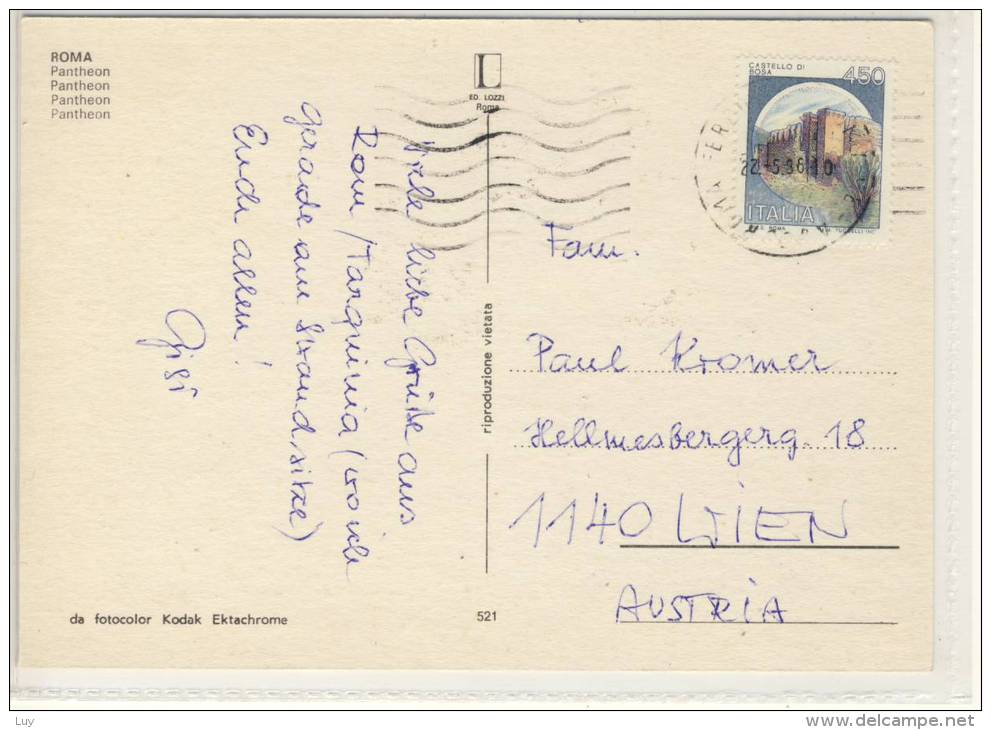 ROMA
Pantheon
Pantheon
Pantheon
Pantheon
ED. LOZZI
Roma
CASTELLO DI
BOSA
450
ITALIA
ROMA
22-5.86.10
Viele liebe Grüße aus
Rom / Tarquinia (wo ich
gerade am Strand sitze)
Euch allen!
Gisi
riproduzione vietata
Fam.
Paul Kromer
Hellmesbergerg. 18
1140 WIEN
AUSTRIA
da fotocolor Kodak Ektachrome
521
Luy
delcampe.net